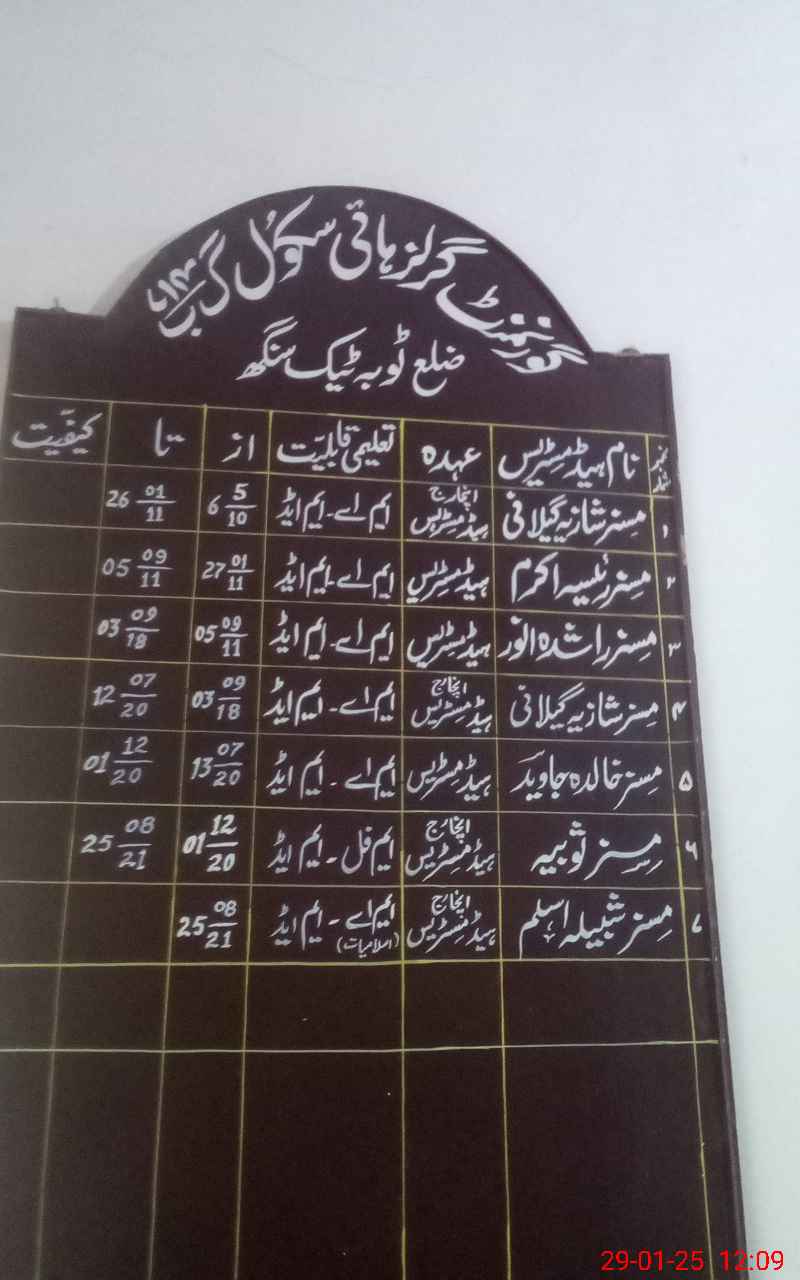 گورنمنٹ گرلز ہائی سکول گ ب
ضلع ٹوبہ ٹیک سنگھ
نمبر شمار نام ہیڈ مسٹریس عہدہ تعلیمی قابلیّت از تا کیفیّت
۱ مسز شازیہ گیلانی انچارج ہیڈ مسٹریس ایم اے ۔ ایم ایڈ 6 5/10 26 01/11
۲ مسز رئیسہ اکرم ہیڈ مسٹریس ایم اے ۔ ایم ایڈ 27 01/11 05 09/11
۳ مسز راشدہ انور ہیڈ مسٹریس ایم اے ۔ ایم ایڈ 05 09/11 03 09/18
۴ مسز شازیہ گیلانی انچارج ہیڈ مسٹریس ایم اے ۔ ایم ایڈ 03 09/18 12 07/20
۵ مسز خالدہ جاوید ہیڈ مسٹریس ایم اے ۔ ایم ایڈ 13 07/20 01 12/20
۶ مسز ثوبیہ انچارج ہیڈ مسٹریس ایم فل ۔ ایم ایڈ 01 12/20 25 08/21
۷ مسز شبیلہ اسلم انچارج ہیڈ مسٹریس ایم اے ۔ ایم ایڈ (اسلامیات) 25 08/21
29-01-25 12:09